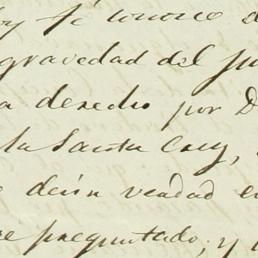 y fé conozco d
gravedad del ju
a derecho por D
la Santa Cruz,
e decir verdad e
re preguntado; y